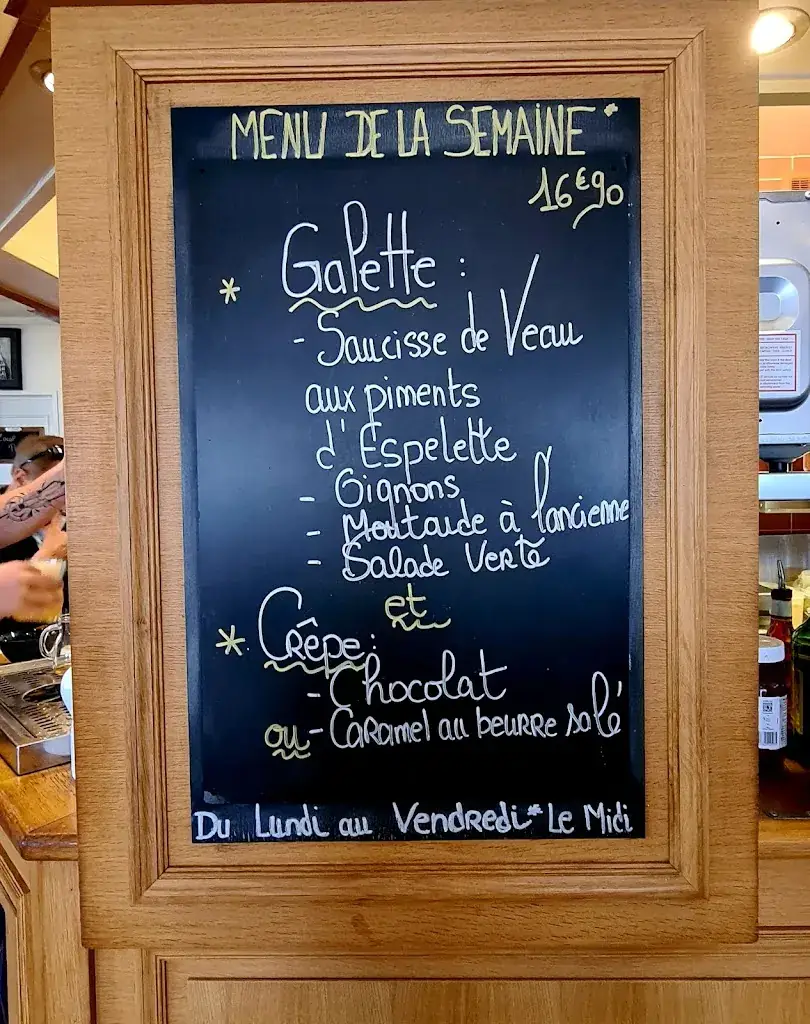 MENU DE LA SEMAINE*
16€90
* Galette :
- Saucisse de Veau
aux piments
d'Espelette
- Oignons
- Moutarde à l'ancienne
- Salade Verte
et
* Crêpe :
- Chocolat
ou - Caramel au beurre salé
Du Lundi au Vendredi * Le Midi